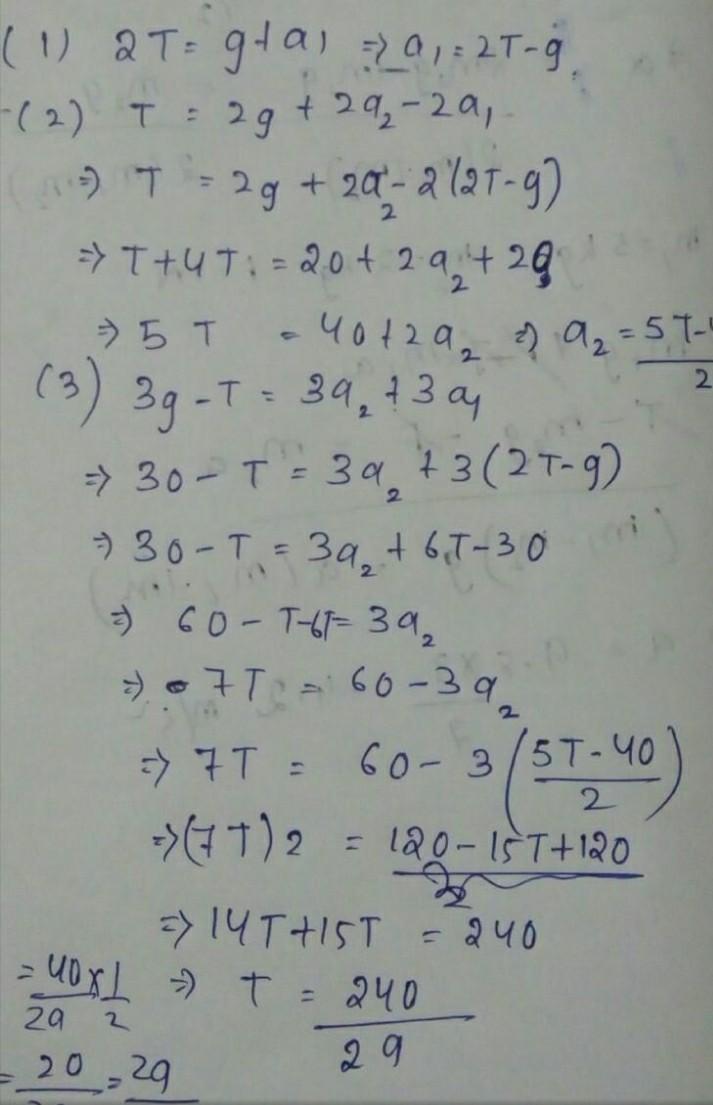 (1) 2T = g + a₁ ⇒ a₁ = 2T - g.
(2) T = 2g + 2a₂ - 2a₁
⇒ T = 2g + 2a₂ - 2(2T - g)
⇒ T + 4T = 20 + 2a₂ + 2g
⇒ 5T = 40 + 2a₂ ⇒ a₂ = 5T - / 2
(3) 3g - T = 3a₂ + 3a₁
⇒ 30 - T = 3a₂ + 3(2T - g)
⇒ 30 - T = 3a₂ + 6T - 30
⇒ 60 - T - 6T = 3a₂
⇒ 7T = 60 - 3a₂
⇒ 7T = 60 - 3 (5T - 40 / 2)
⇒ (7T)2 = 120 - 15T + 120
⇒ 14T + 15T = 240
= 40/29 × 1/2 ⇒ T = 240/29
= 20 = 29